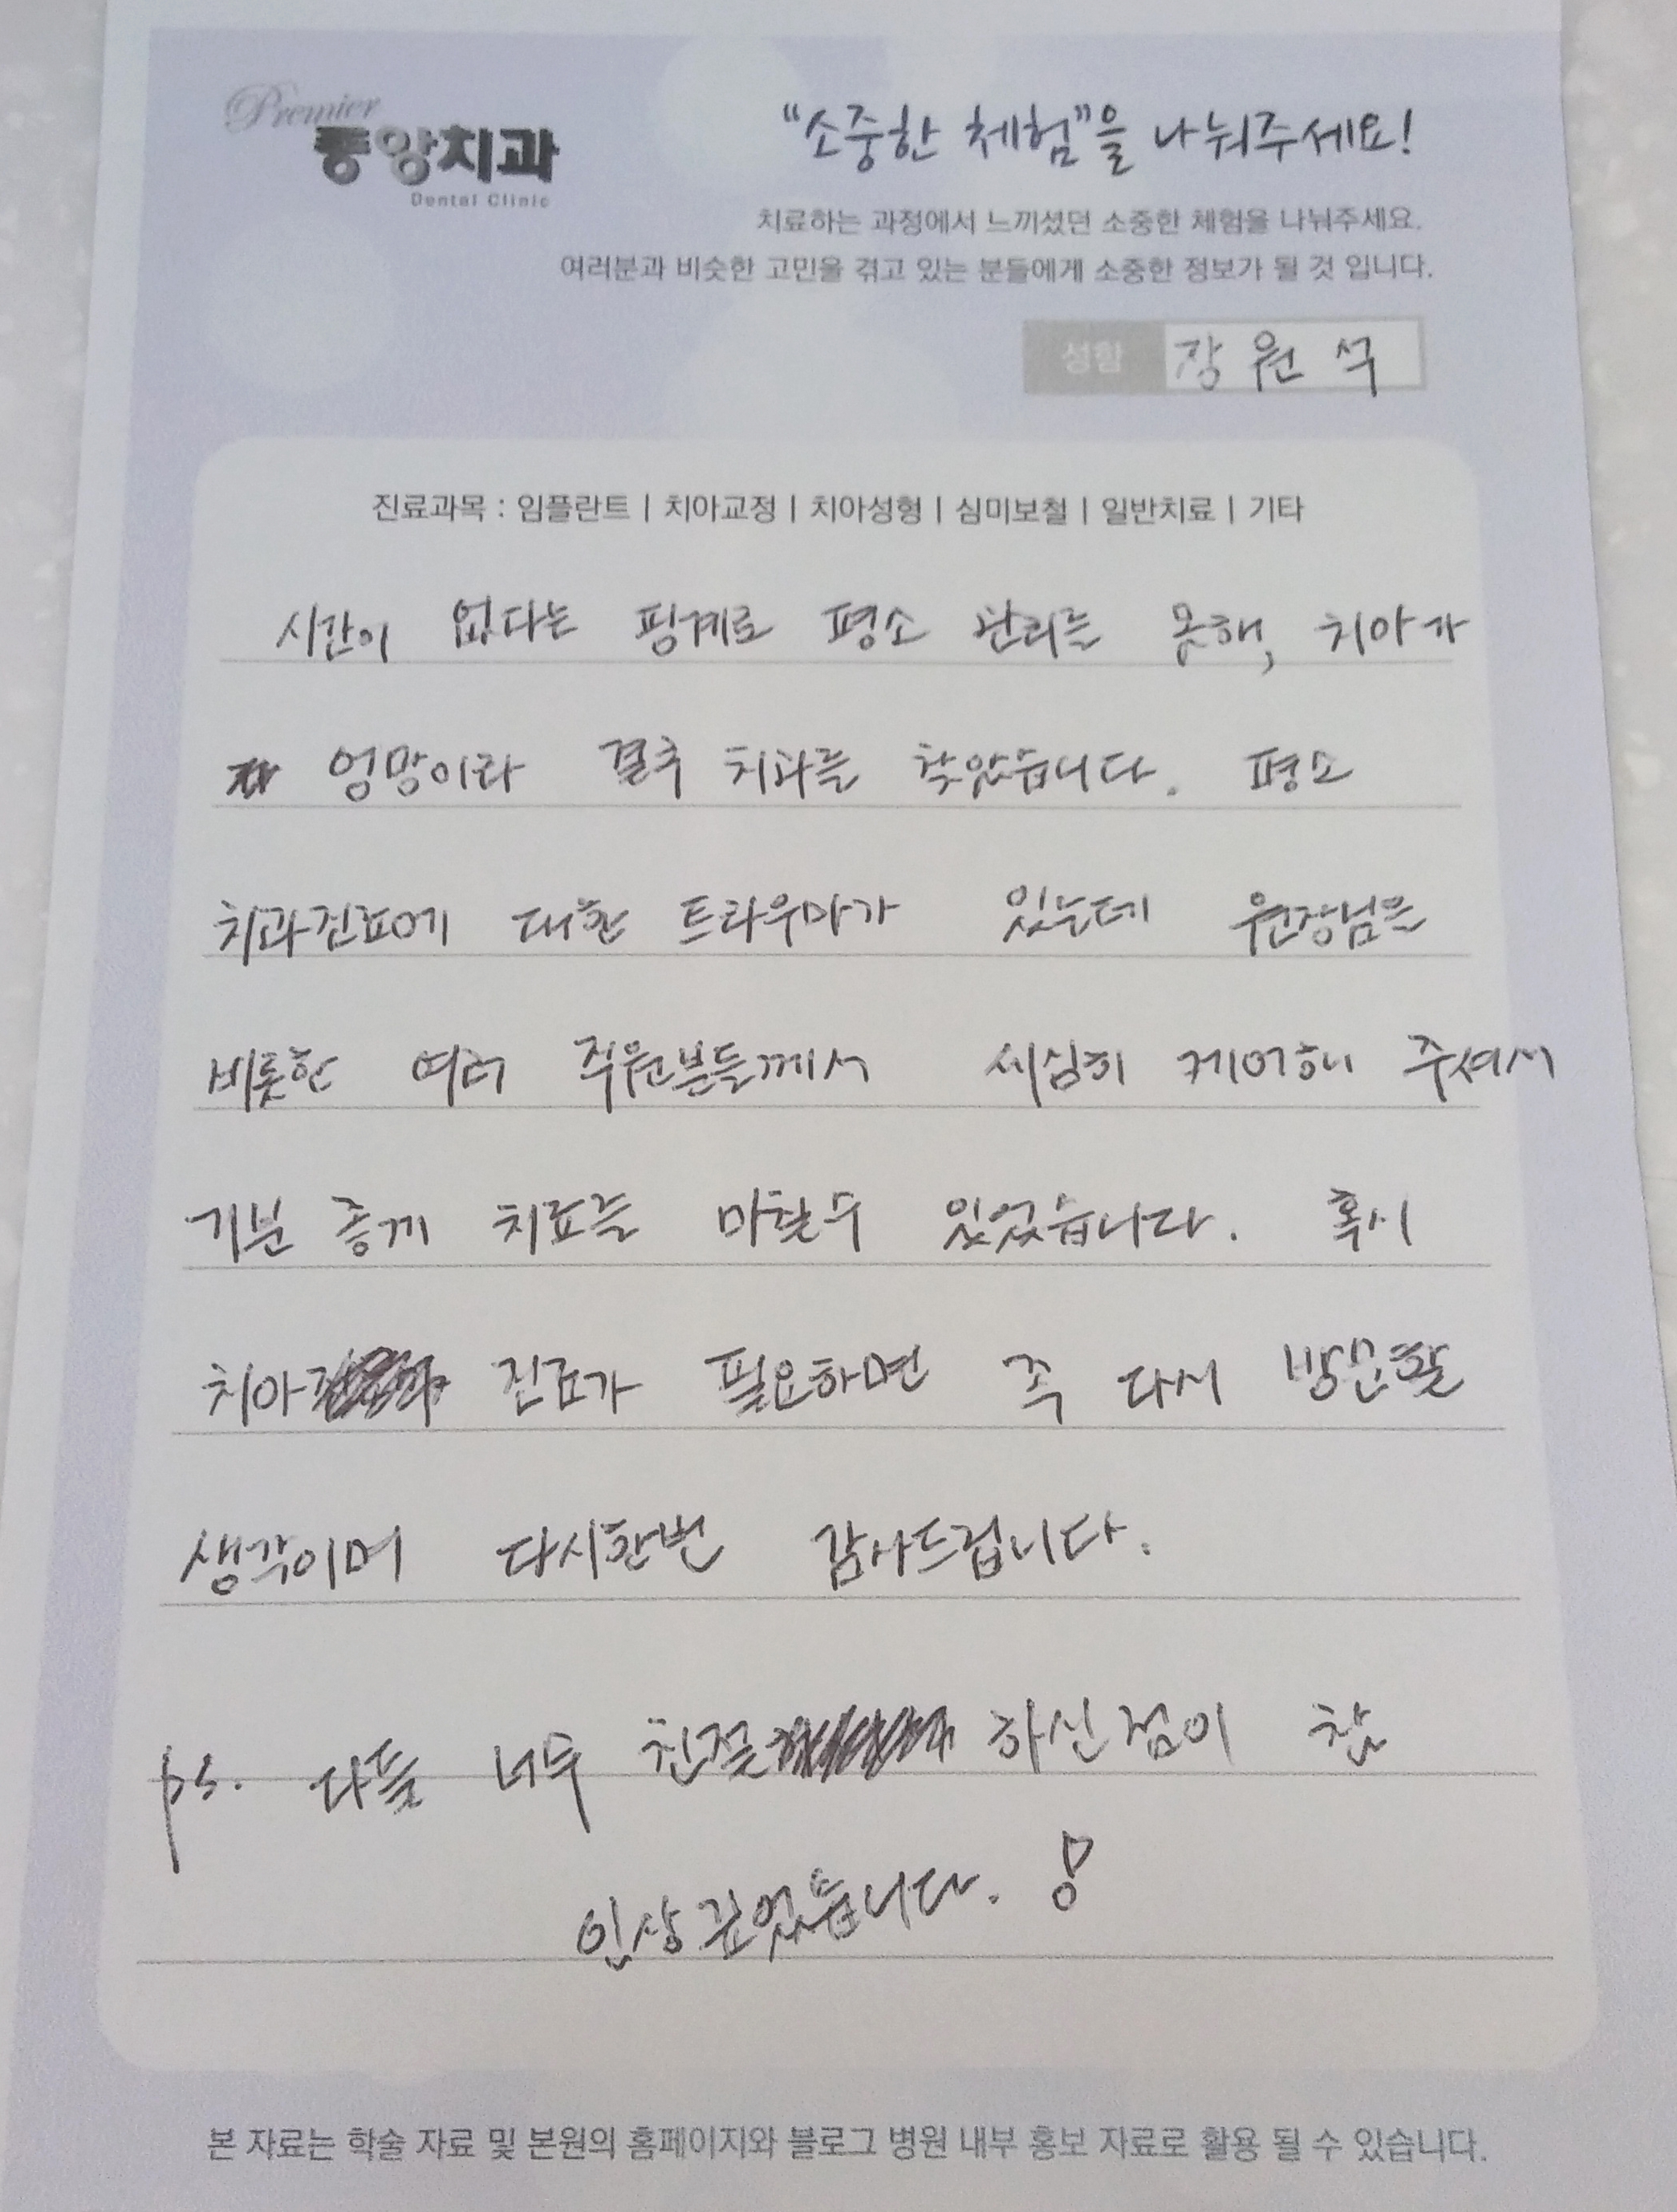 Premier
중앙치과
Dental Clinic
"소중한 체험"을 나눠주세요!
치료하는 과정에서 느끼셨던 소중한 체험을 나눠주세요.
여러분과 비슷한 고민을 겪고 있는 분들에게 소중한 정보가 될 것 입니다.
성함 장원석
진료과목 : 임플란트 | 치아교정 | 치아성형 | 심미보철 | 일반치료 | 기타
시간이 없다는 핑계로 평소 관리를 못해, 치아가
엉망이라 결국 치과를 찾았습니다. 평소
치과진료에 대한 트라우마가 있는데 원장님을
비롯한 여러 직원분들께서 세심히 케어해 주셔서
기분 좋게 치료를 마칠수 있었습니다. 혹시
치아 진료가 필요하면 꼭 다시 방문할
생각이며 다시한번 감사드립니다.
ps. 다들 너무 친절 하신점이 참
인상깊었습니다. !
본 자료는 학술 자료 및 본원의 홈페이지와 블로그 병원 내부 홍보 자료로 활용 될 수 있습니다.